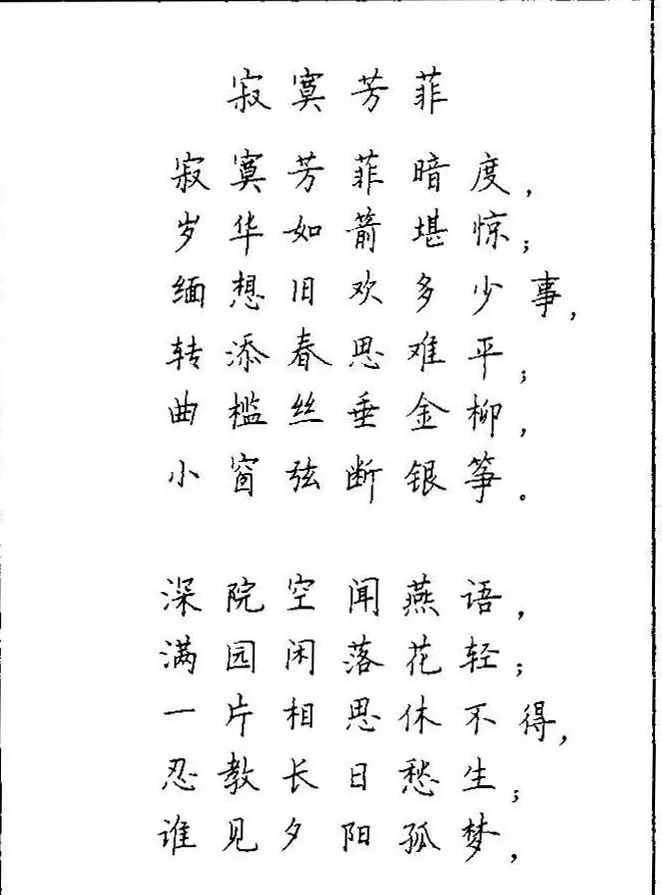 寂寞芳菲
寂寞芳菲暗度，
岁华如箭堪惊；
缅想旧欢多少事，
转添春思难平；
曲槛丝垂金柳，
小窗弦断银筝。
深院空闻燕语，
满园闲落花轻；
一片相思休不得，
忍教长日愁生；
谁见夕阳孤梦，